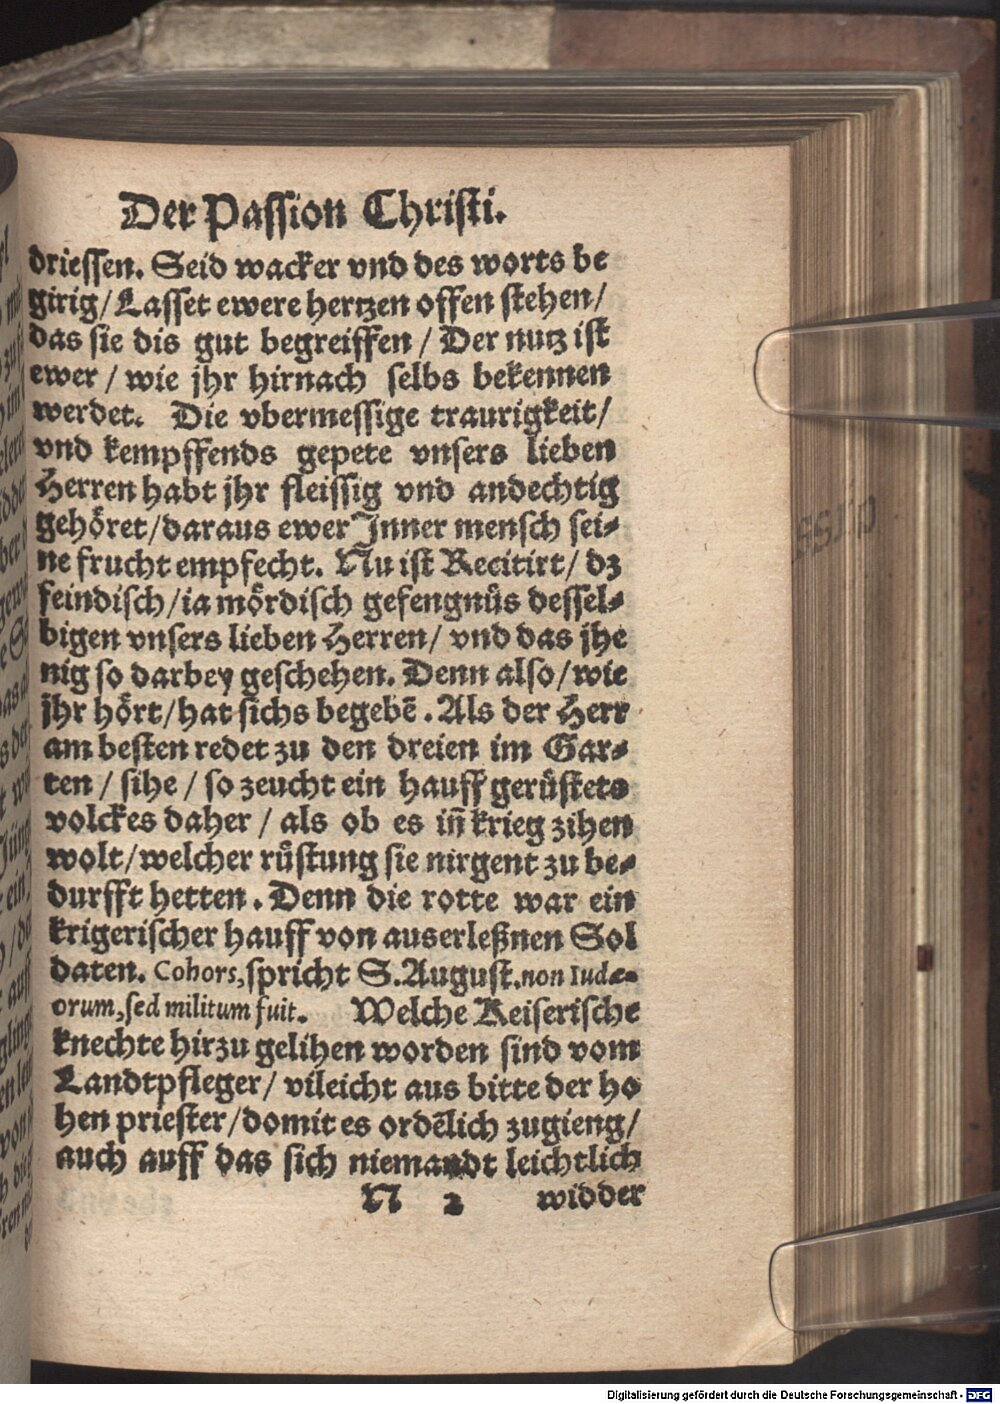 Der Passion Christi.
driessen. Seid wacker vnd des worts be
girig/ Lasset ewere hertzen offen stehen/
das sie dis gut begreiffen / Der nutz ist
ewer / wie jhr hirnach selbs bekennen
werdet. Die vbermessige traurigkeit/
vnd kempffends gepete vnsers lieben
Herren habt jhr fleissig vnd andechtig
gehöret/daraus ewer Inner mensch sei-
ne frucht empfecht. Nu ist Recitirt/ dz
feindisch/ia mördisch gefengnüs dessel-
bigen vnsers lieben Herren/ vnd das jhe
nig so darbey geschehen. Denn also/wie
jhr hört/hat sichs begebē. Als der Herr
am besten redet zu den dreien im Gar-
ten / sihe / so zeucht ein hauff gerüstets
volckes daher / als ob es in̄ krieg zihen
wolt/welcher rüstung sie nirgent zu be-
durfft hetten. Denn die rotte war ein
krigerischer hauff von auserleßnen Sol
daten. Cohors, spricht S. August. non Iudæ-
orum, sed militum fuit. Welche Keiserische
knechte hirzu gelihen worden sind vom
Landtpfleger/ vileicht aus bitte der ho
hen priester/domit es ordēlich zugieng/
auch auff das sich niemandt leichtlich
N 2 widder
Digitalisierung gefördert durch die Deutsche Forschungsgemeinschaft - DFG